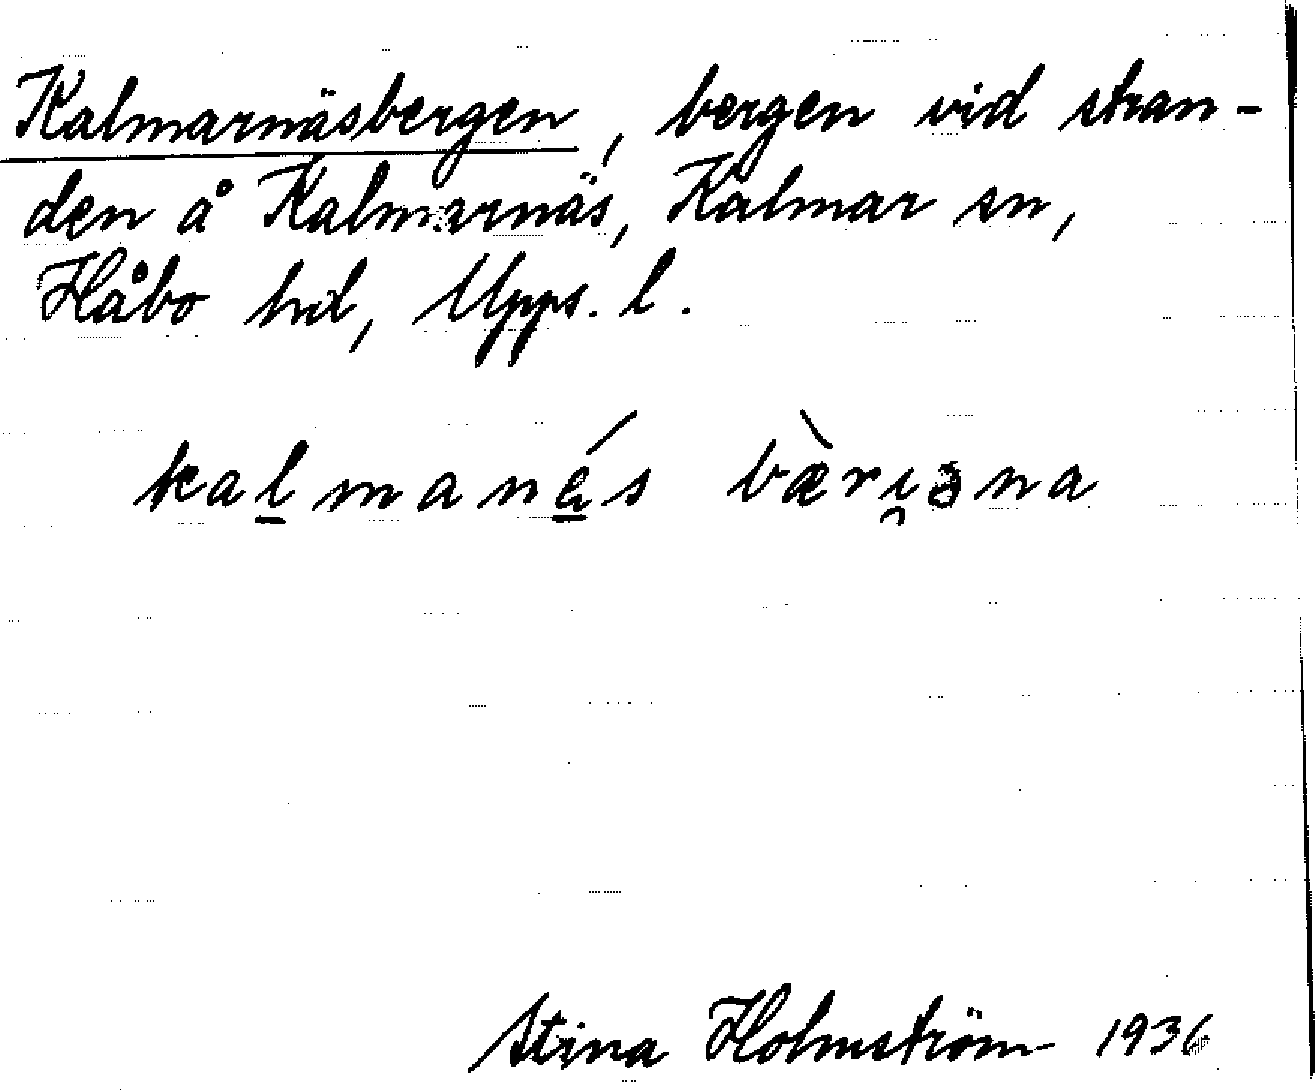 Kalmarnäsbergen, bergen vid stran-
den å Kalmarnäs, Kalmar sn,
Håbo hd, Upps. l.
kalmanés bæ̀ri̯əna
Stina Holmström 1936